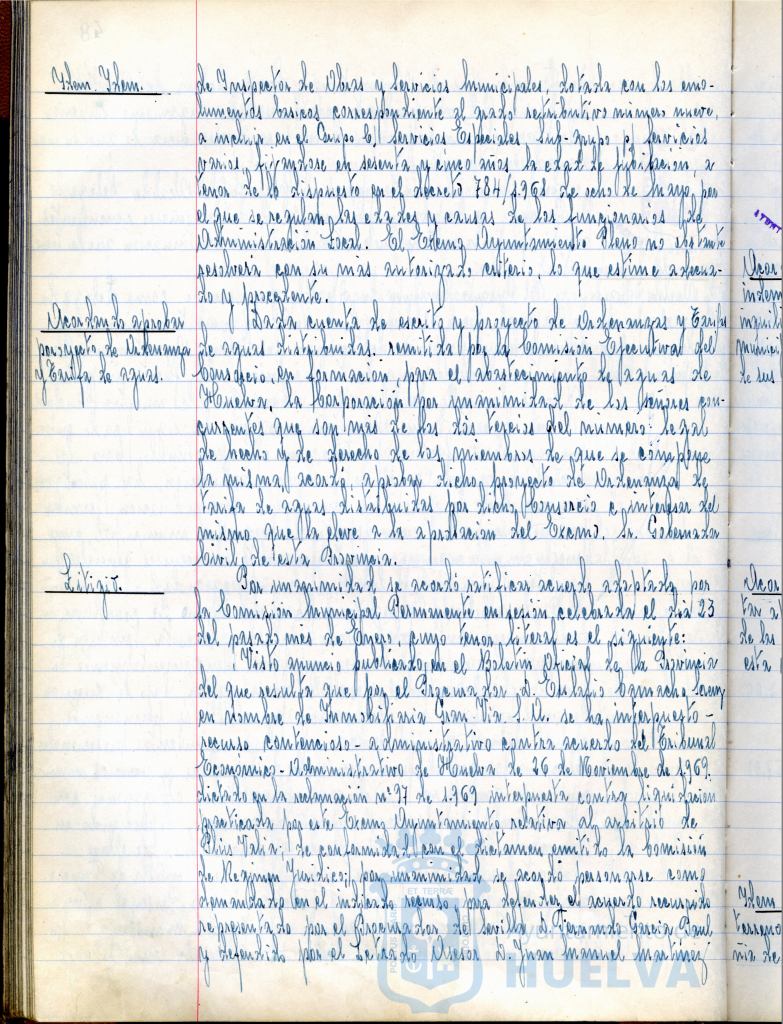 Idem. Idem.
de Inspector de Obras y Servicios Municipales, dotada con los emo-
lumentos basicos correspondiente al grado retributivo número nueve,
a incluir en el Grupo C) Servicios Especiales Sub-grupo p) servicios
varios, fijandose en sesenta y cinco años la edad de jubilación, a
tenor de lo dispuesto en el decreto 784/1.968 de ocho de Mayo, por
el que se regulan las edades y causas de los funcionarios de
Administración Local. El Excmo Ayuntamiento Pleno no obstante
resolvera con su más autorizado criterio, lo que estime adecua-
do y procedente.
Acordando aprobar
poroyecto de Ordenanza
y Tarifa de aguas.
Dada cuenta de escrito y proyecto de Ordenanzas y Tarifas
de aguas distribuidas, remitida por la Comisión Ejecutiva del
Consorcio, en formación, para el abastecimiento de aguas de
Huelva, la Corporación por unanimidad de los señores con-
currentes que son más de los dós tercios del número legal
de hecho y de derecho de los miembros de que se compone
la misma, acordó, aprobar dicho proyecto de Ordenanza de
tarifa de aguas distribuidas por dicho Consorcio e interesar del
mismo que la eleve a la aprobación del Excmo. Sr. Gobernador
Civil de esta Provincia.
Litigio.
Por unanimidad se acordó ratificar acuerdo adoptado por
la Comisión Municipal Permanente en sesión celebrada el dia 23
del pasado mes de Enero, cuyo tenor literal es el siguiente:
"Visto anuncio publicado en el Boletín Oficial de la Provincia
del que resulta que por el Procurador D. Eulalio Camacho
en nombre de Inmobiliaria Gran Via S.A. se ha interpuesto -
recurso contencioso-administrativo contra acuerdo del Tribunal
Económico-Administrativo de Huelva de 26 de Noviembre de 1.969,
dictado en la reclamación nº 97 de 1.969 interpuesta contra liquidación
practicada por este Excmo Ayuntamiento relativa al arbitrio de
Plus Valia; de conformidad con el dictamen emitido la Comisión
de Regimen Juridico; por unanimidad se acordó personarse como
demandado en el indicado recurso para defender el acuerdo recurrido
representado por el Procurador de Sevilla D. Fernando Garcia Paul
y defendido por el Letrado Asesor D. Juan Manuel Martinez
Acor
indem
inquili
munici
de sus
Acor
tar a
de las
esta
Idem
terreno
ña de
Ayuntamiento
HUELVA